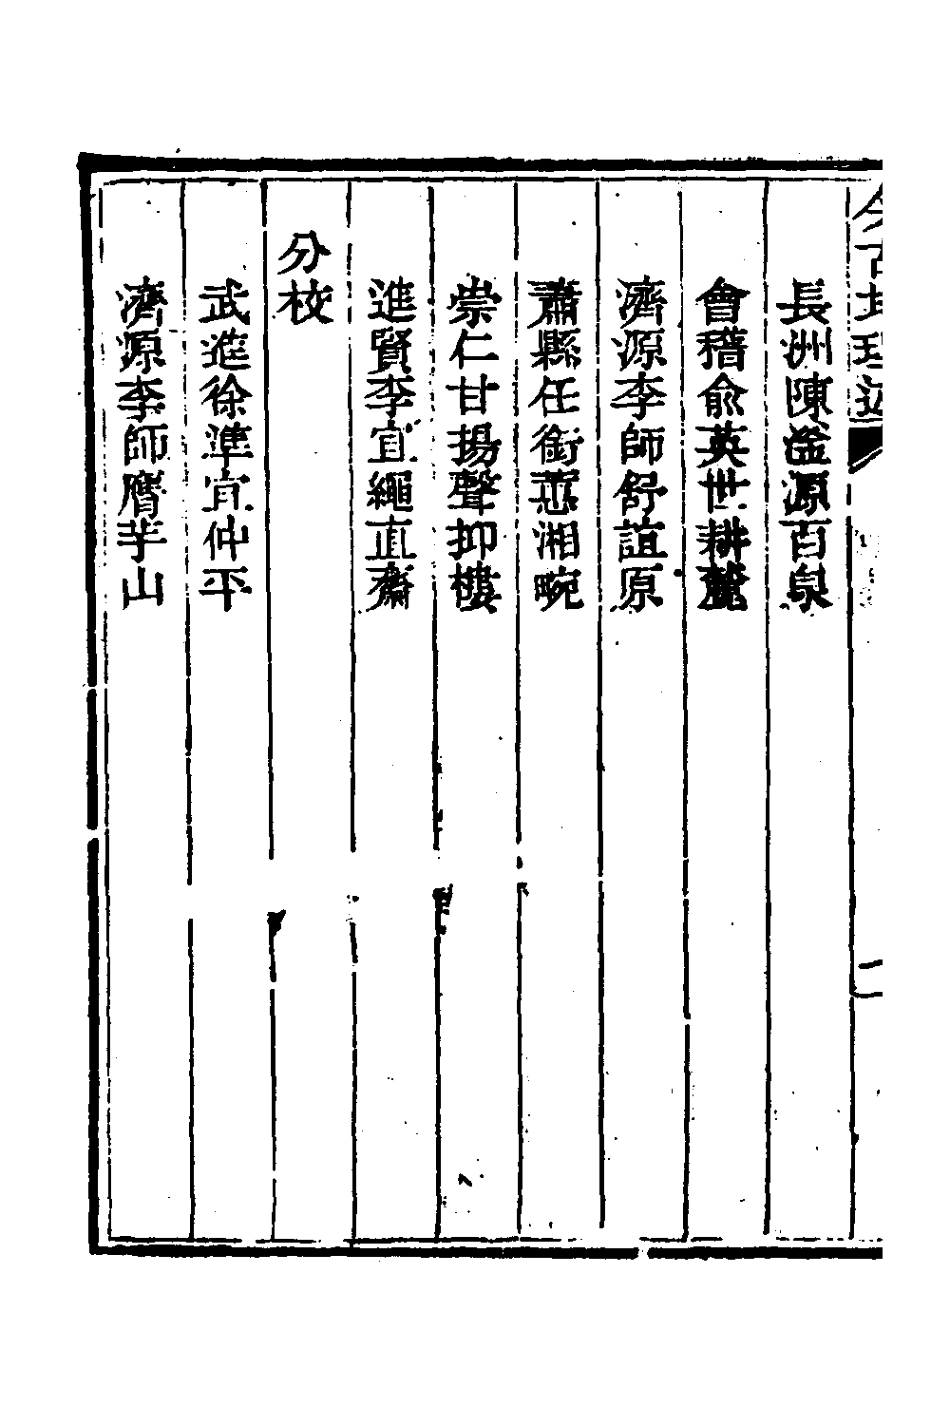 今古地理述
長洲陳浛源百泉
會稽俞英世耕麓
濟源李師舒誼原
蕭縣任銜蕙湘畹
崇仁甘揚聲抑樓
進賢李宜繩直齋
分校
武進徐準宜仲平
濟源李師膺芋山
二